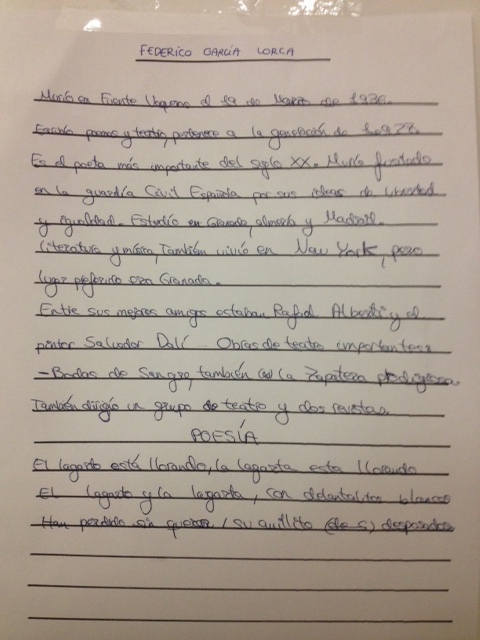 FEDERICO GARCÍA LORCA
Murío en Fuente Vaqueros el 19 de Marzo de 1936.
Escribía poemas y teatro, pertenece a la generación de 1.927.
Es el poeta más importante del siglo XX. Murío fusilado
en la guardía Civil Española por sus ideas de libertad
y igualdad. Estudío en Granada, almería y Madrid.
literatura y música, También vivío en New York, pero
lugar preferido era Granada.
Entre sus mejores amigos estaban Rafael Alberti y el
pintor Salvador Dalí. Obras de teatro importantes:
- Bodas de Sangre, también la Zapatera prodigiosa.
También dirigío un grupo de teatro y dos revistas.
POESÍA
El lagarto está llorando, la lagarta esta llorando
El lagarto y la lagarta, con delantalitos blancos
Han perdido sin querer / su anillito (de s) desposados